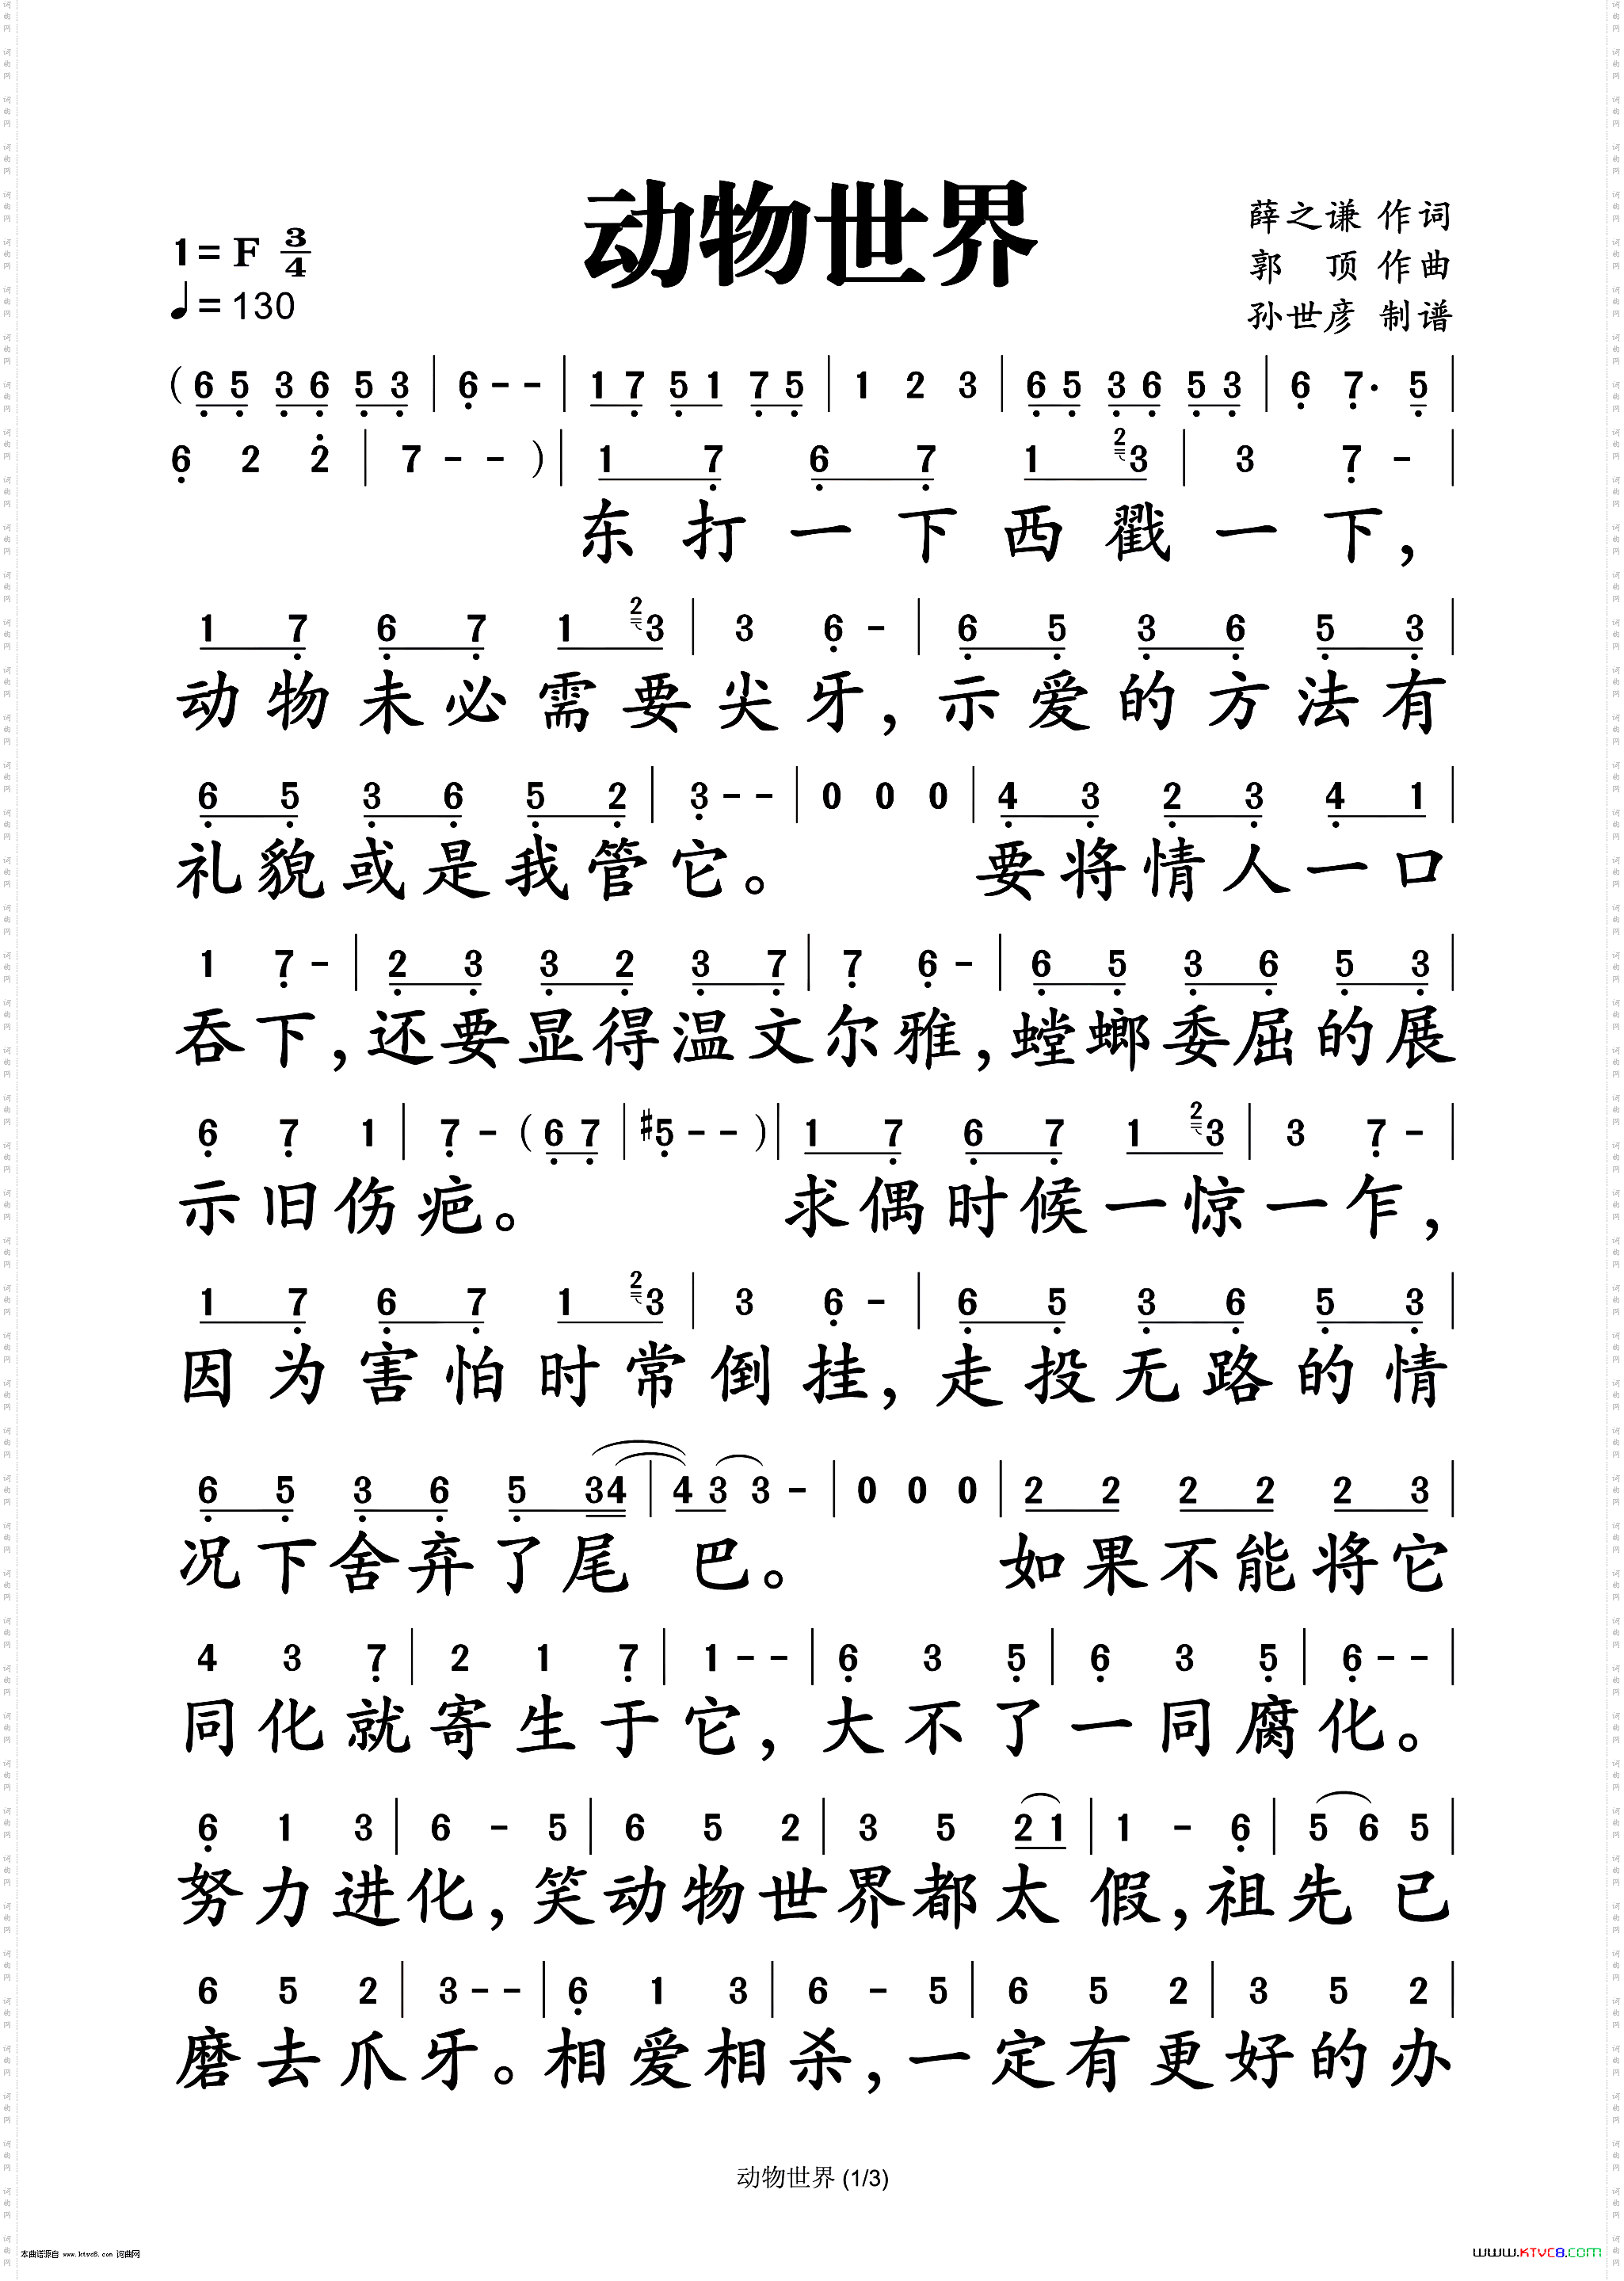 动物世界
1=F 3/4
♩=130
薛之谦 作词
郭 顶 作曲
孙世彦 制谱
(6 5 3 6 5 3 | 6 - - | 1 7 5 1 7 5 | 1 2 3 | 6 5 3 6 5 3 | 6 7· 5 |
6 2 2 | 7 - - ) | 1 7 6 7 1 2 3 | 3 7 - |
东打一下西戳一下,
1 7 6 7 1 2 3 | 3 6 - | 6 5 3 6 5 3 |
动物未必需要尖牙,示爱的方法有
6 5 3 6 5 2 | 3 - - | 0 0 0 | 4 3 2 3 4 1 |
礼貌或是我管它。 要将情人一口
1 7 - | 2 3 3 2 3 7 | 7 6 - | 6 5 3 6 5 3 |
吞下,还要显得温文尔雅,螳螂委屈的展
6 7 1 | 7 - (6 7 | #5 - - ) | 1 7 6 7 1 2 3 | 3 7 - |
示旧伤疤。 求偶时候一惊一乍,
1 7 6 7 1 2 3 | 3 6 - | 6 5 3 6 5 3 |
因为害怕时常倒挂,走投无路的情
6 5 3 6 5 34 | 4 3 3 - | 0 0 0 | 2 2 2 2 2 3 |
况下舍弃了尾巴。 如果不能将它
4 3 7 | 2 1 7 | 1 - - | 6 3 5 | 6 3 5 | 6 - - |
同化就寄生于它,大不了一同腐化。
6 1 3 | 6 - 5 | 6 5 2 | 3 5 2 1 | 1 - 6 | 5 6 5 |
努力进化,笑动物世界都太假,祖先已
6 5 2 | 3 - - | 6 1 3 | 6 - 5 | 6 5 2 | 3 5 2 |
磨去爪牙。相爱相杀,一定有更好的办
动物世界 (1/3)
本曲谱源自 www.ktvc8.com 词曲网
www.KTVC8.com